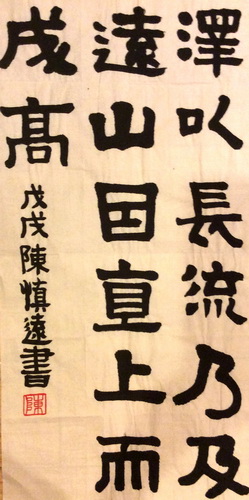 澤以長流乃及
遠山因直上而
成高
戊戌陳慎遠書
陳